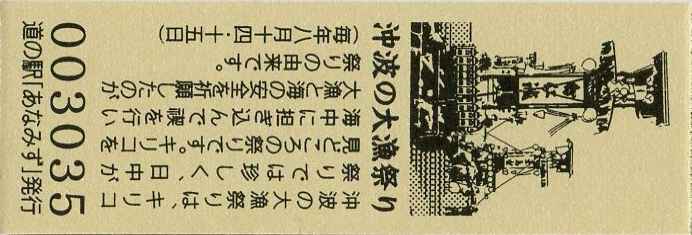 沖波の大漁祭り
沖波の大漁祭りは、キリコ
祭りでは珍しく、日中が
見どころの祭りです。キリコを
海中に担ぎ込んで禊を行い
大漁と海の安全を祈願したのが
祭りの由来です。
(毎年八月十四・十五日)
003035
道の駅「あなみず」発行